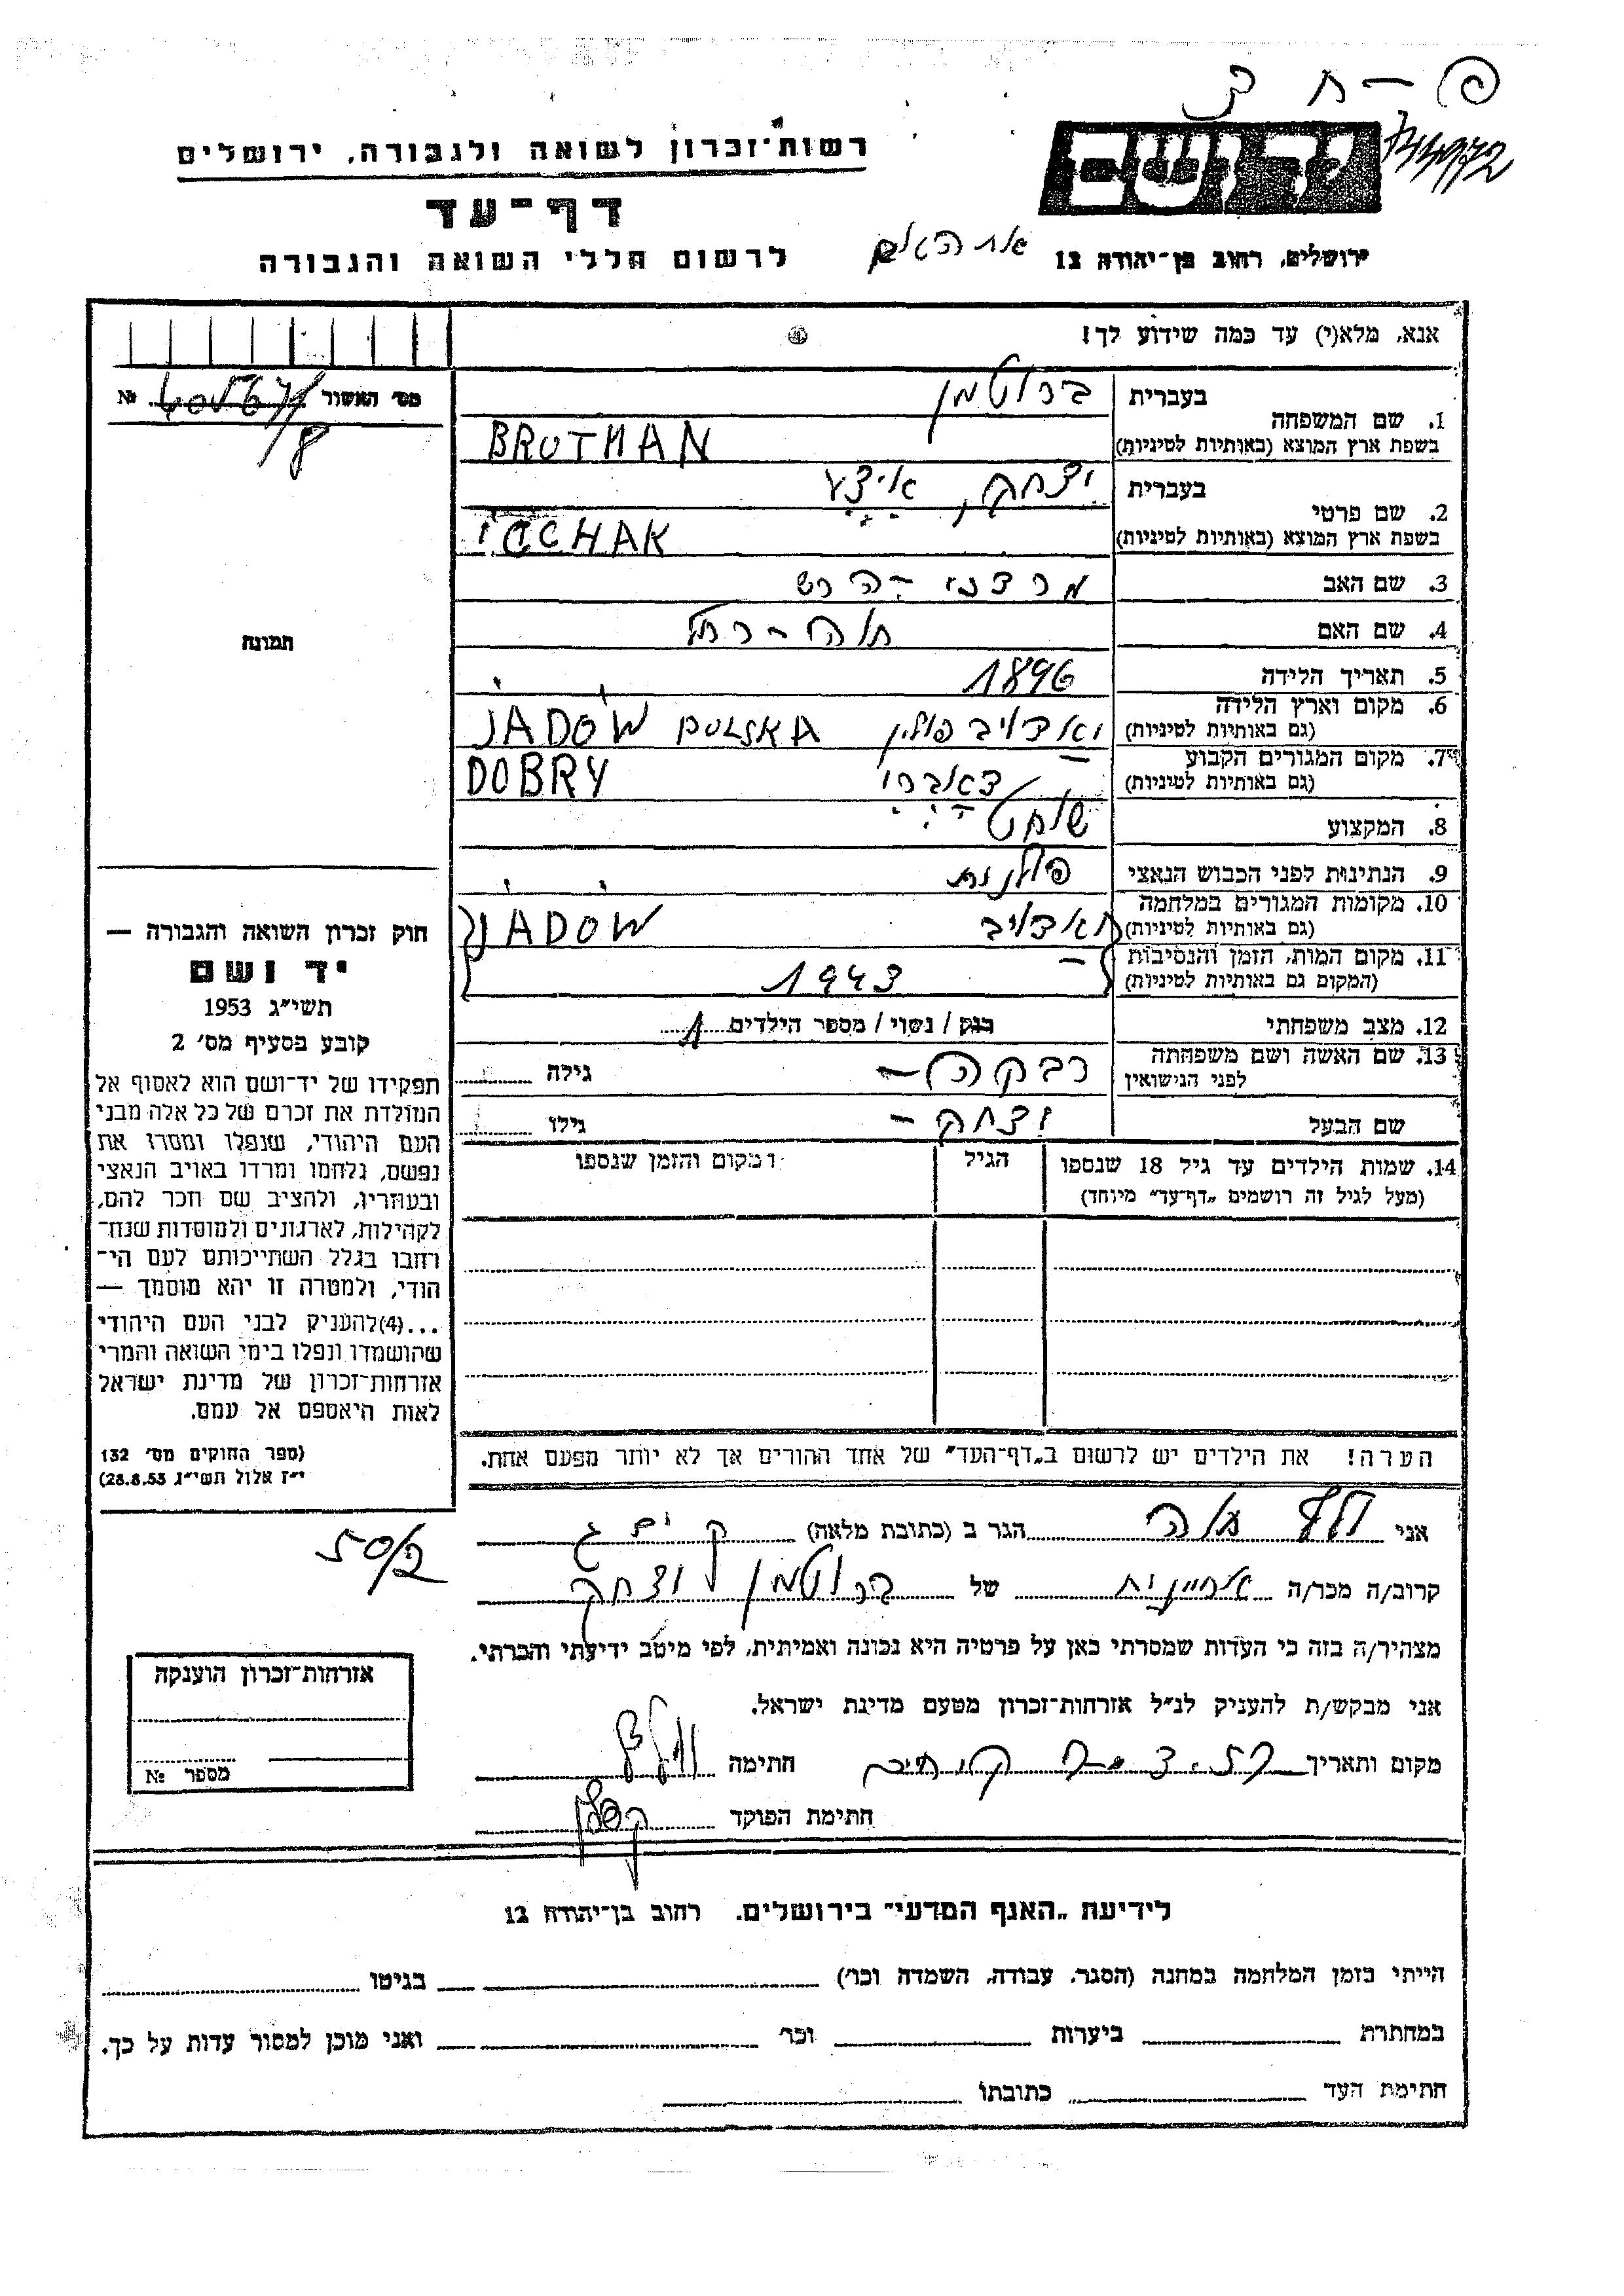 רשות־זכרון לשואה ולגבורה, ירושלים
דף־עד
לרשום חללי השואה והגבורה
יד ושם
ירושלים, רחוב בן־יהודה 12
אנא, מלא(י) עד כמה שידוע לך!
מס׳ האשור №
1. שם המשפחה בעברית ברוטמן
בשפת ארץ המוצא (באותיות לטיניות) BRUTMAN
2. שם פרטי בעברית יצחק, איצע
בשפת ארץ המוצא (באותיות לטיניות) ICCHAK
3. שם האב מרדכי - הרש
4. שם האם חוה - רחל
5. תאריך הלידה 1896
6. מקום וארץ הלידה (גם באותיות לטיניות) יאדויב פולין JADOW POLSKA
7. מקום המגורים הקבוע (גם באותיות לטיניות) דאברי DOBRY
8. המקצוע שוחט
9. הנתינות לפני הכבוש הנאצי פולנית
10. מקומות המגורים במלחמה (גם באותיות לטיניות) יאדויב JADOW
11. מקום המות, הזמן והנסיבות (המקום גם באותיות לטיניות) 1943
12. מצב משפחתי רווק / נשוי / מספר הילדים 1
13. שם האשה ושם משפחתה לפני הנישואין רבקה – גילה
שם הבעל יצחק – גילו
14. שמות הילדים עד גיל 18 שנספו הגיל המקום והזמן שנספו
(מעל לגיל זה רושמים „דף־עד״ מיוחד)
הערה! את הילדים יש לרשום ב„דף־העד״ של אחד ההורים אך לא יותר מפעם אחת.
תמונה
חוק זכרון השואה והגבורה —
יד ושם
תשי״ג 1953
קובע בסעיף מס׳ 2
תפקידו של יד־ושם הוא לאסוף אל
המולדת את זכרם של כל אלה מבני
העם היהודי, שנפלו ומסרו את
נפשם, נלחמו ומרדו באויב הנאצי
ובעוזריו, ולהציב שם וזכר להם,
לקהילות, לארגונים ולמוסדות שנח־
רחבו בגלל השתייכותם לעם הי־
הודי, ולמטרה זו יהא מוסמך —
...(4)להעניק לבני העם היהודי
שהושמדו ונפלו בימי השואה והמרי
אזרחות־זכרון של מדינת ישראל
לאות היאספם אל עמם.
(ספר החוקים מס׳ 132
י״ז אלול תשי״ג 28.8.53)
אני הגר ב (כתובת מלאה)
קרוב/ה מכר/ה אחיינית של ברוטמן יצחק
מצהיר/ה בזה כי העדות שמסרתי כאן על פרטיה היא נכונה ואמיתית, לפי מיטב ידיעתי והכרתי.
אני מבקש/ת להעניק לנ״ל אזרחות־זכרון מטעם מדינת ישראל.
מקום ותאריך חתימה
חתימת הפוקד
אזרחות־זכרון הוענקה
מספר №
לידיעת „האגף המדעי״ בירושלים. רחוב בן־יהודה 12
הייתי בזמן המלחמה במחנה (הסגר, עבודה, השמדה וכו׳) בגיטו
במחתרת ביערות וכו׳ ואני מוכן למסור עדות על כך.
חתימת העד כתובתו